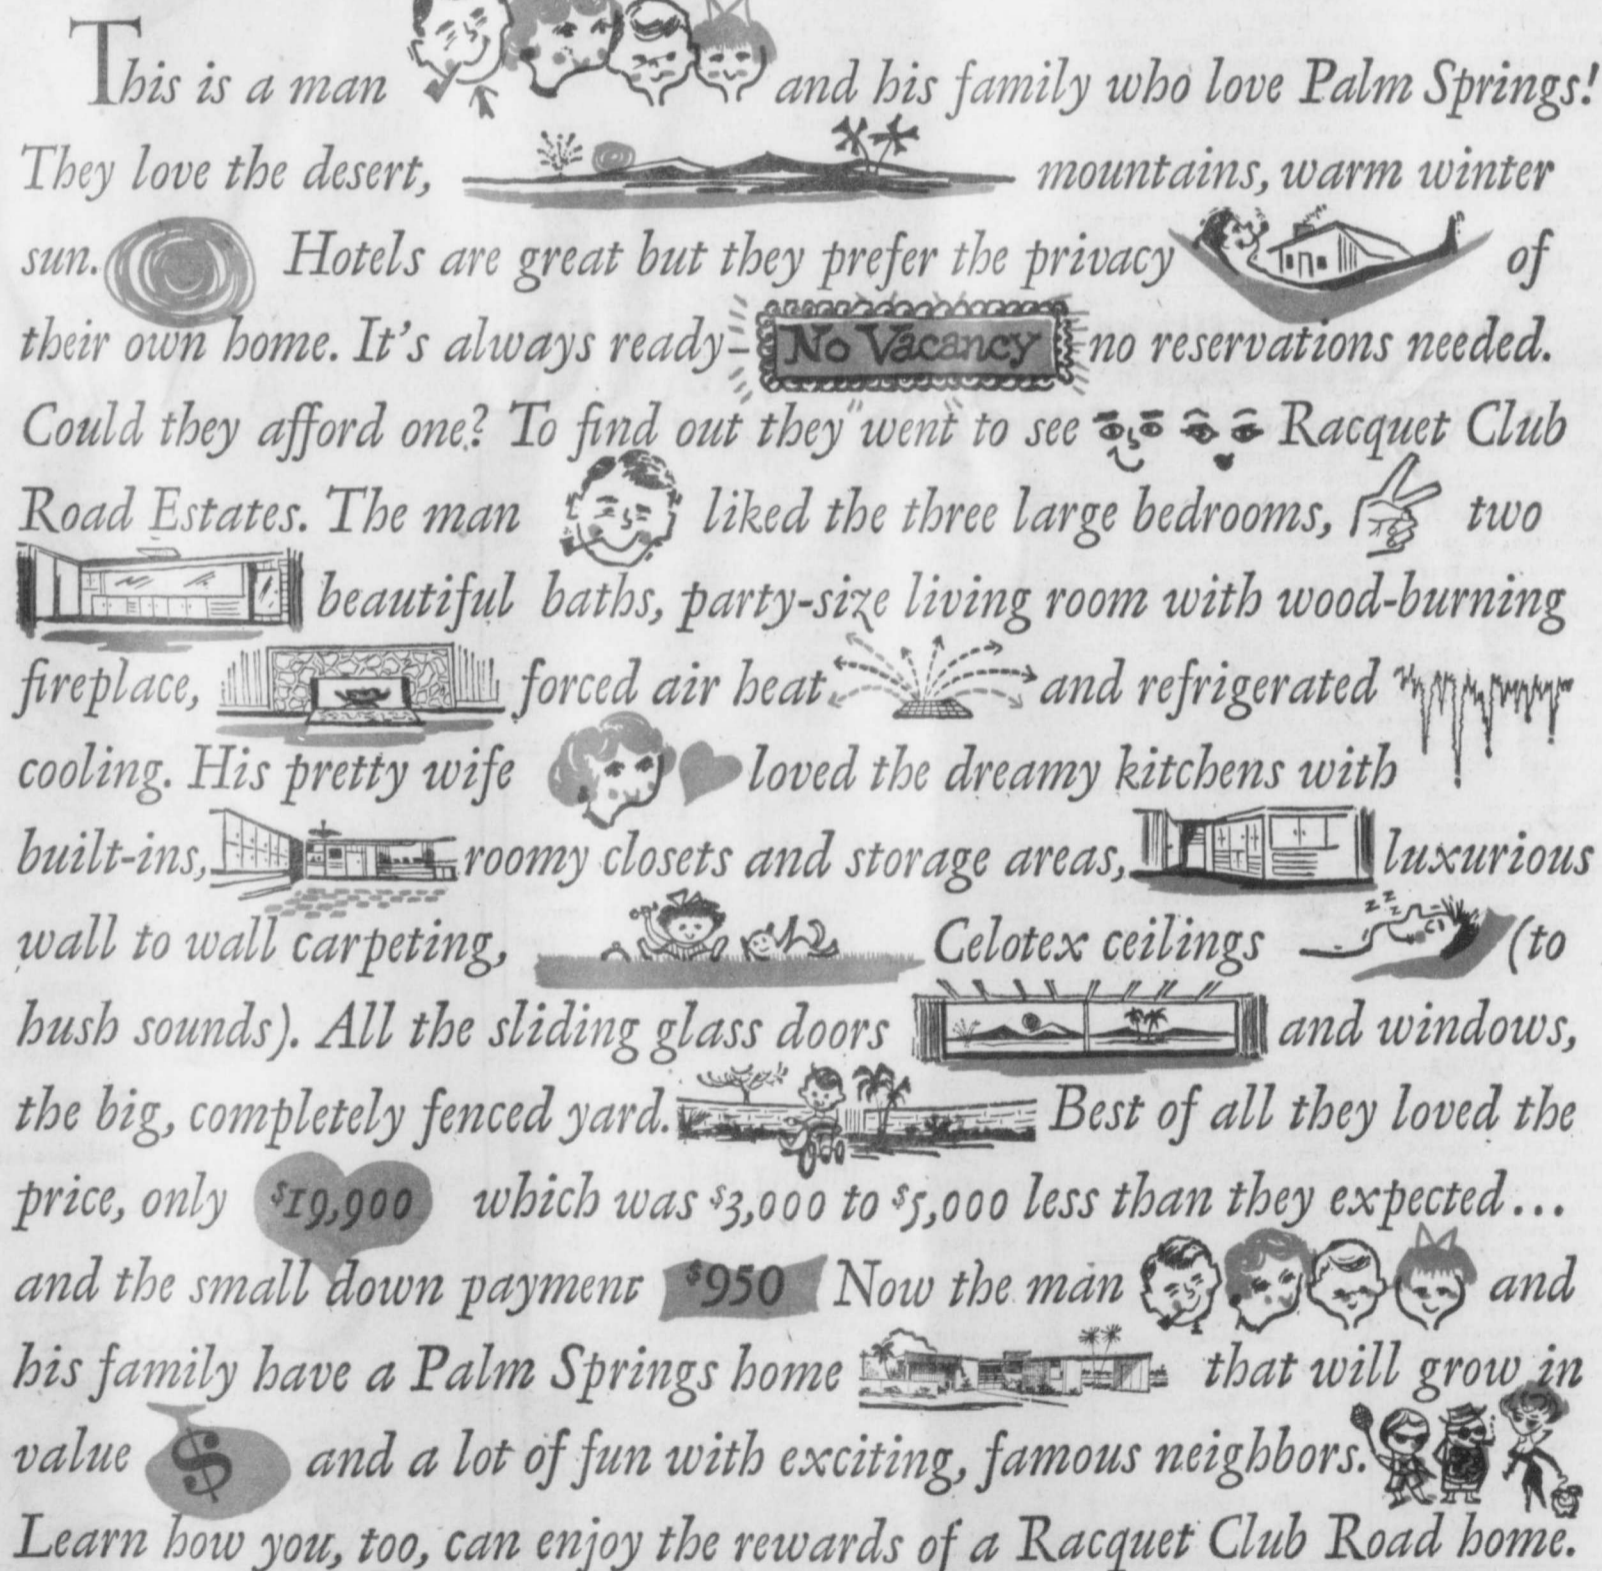 This is a man and his family who love Palm Springs!
They love the desert, mountains, warm winter
sun. Hotels are great but they prefer the privacy of
their own home. It's always ready– No Vacancy no reservations needed.
Could they afford one? To find out they went to see Racquet Club
Road Estates. The man liked the three large bedrooms, two
beautiful baths, party-size living room with wood-burning
fireplace, forced air heat and refrigerated
cooling. His pretty wife loved the dreamy kitchens with
built-ins, roomy closets and storage areas, luxurious
wall to wall carpeting, zzz Celotex ceilings (to
hush sounds). All the sliding glass doors and windows,
the big, completely fenced yard. Best of all they loved the
price, only $19,900 which was $3,000 to $5,000 less than they expected...
and the small down payment $950 Now the man and
his family have a Palm Springs home that will grow in
value $ and a lot of fun with exciting, famous neighbors.
Learn how you, too, can enjoy the rewards of a Racquet Club Road home.